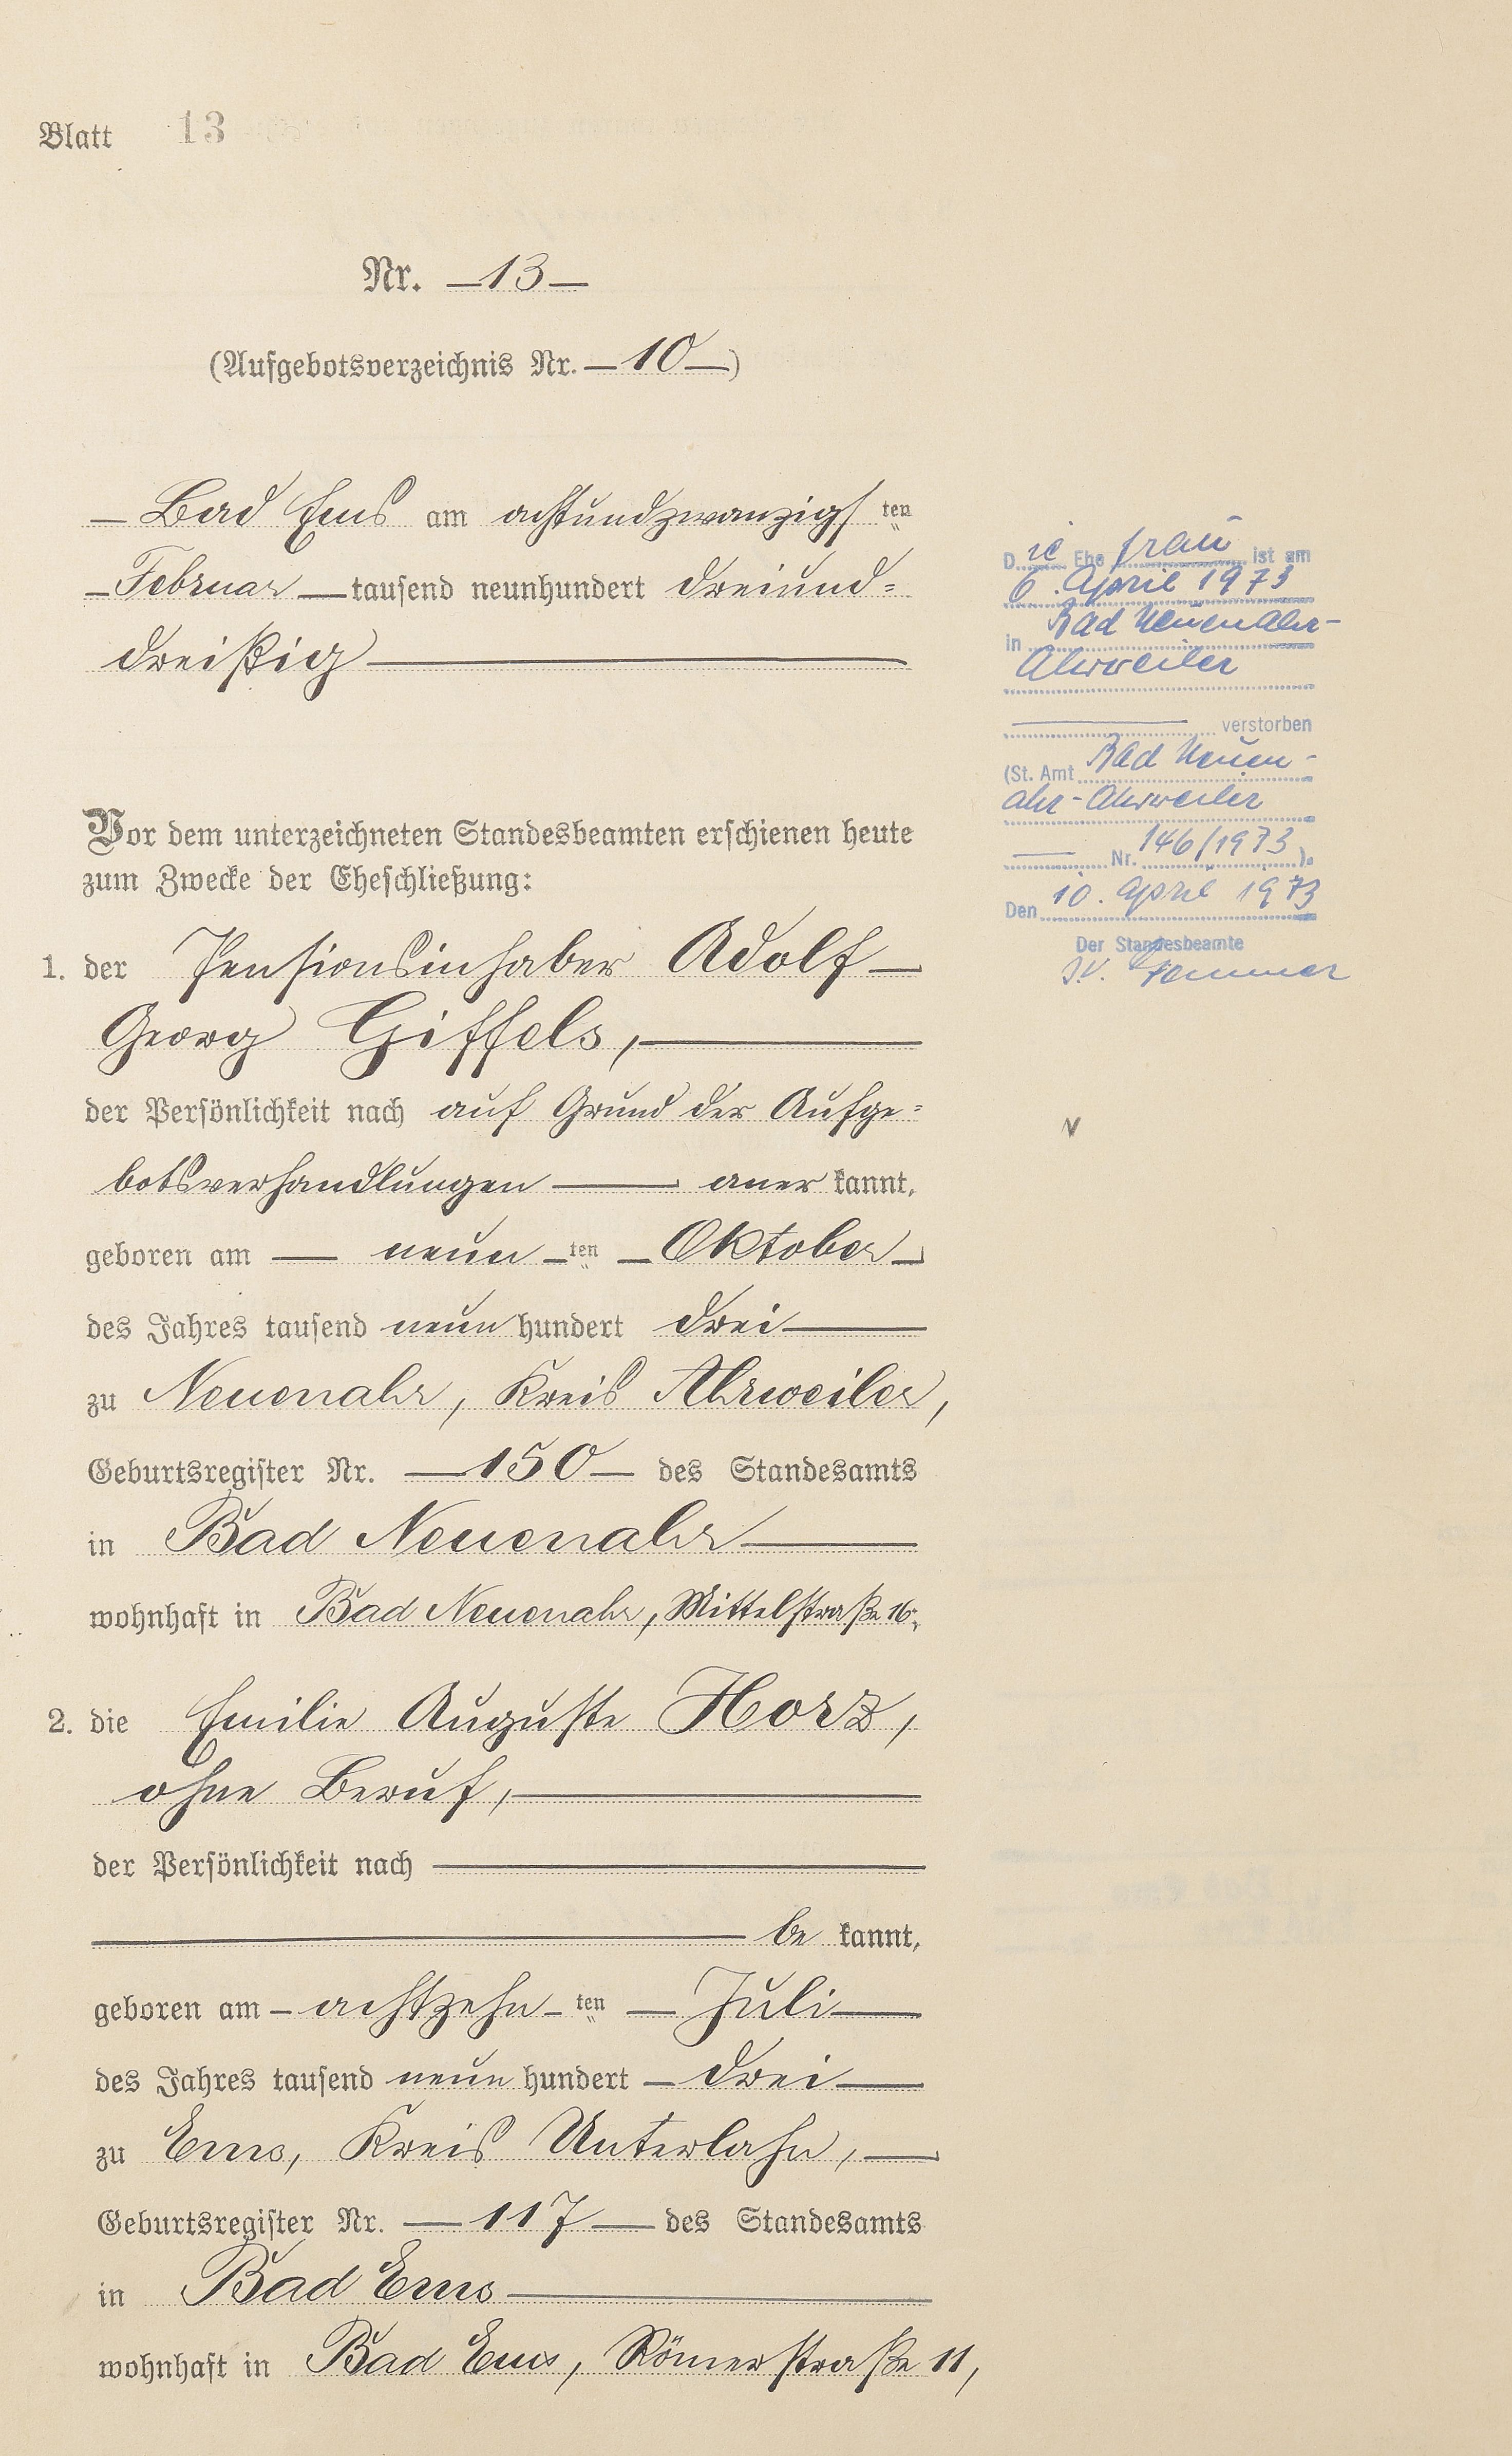 Blatt 13
Nr. 13
(Aufgebotsverzeichnis Nr. 10)
Bad Ems am achtundzwanzigsten
Februar tausend neunhundert dreiund=
dreißig
Vor dem unterzeichneten Standesbeamten erschienen heute
zum Zwecke der Eheschließung:
1. der Pensionsinhaber Adolf
Georg Giffels,
der Persönlichkeit nach auf Grund der Aufge=
botsverhandlungen aner kannt,
geboren am neun ten Oktober
des Jahres tausend neun hundert drei
zu Neuenahr, Kreis Ahrweiler,
Geburtsregister Nr. 150 des Standesamts
in Bad Neuenahr
wohnhaft in Bad Neuenahr, Mittelstraße 16,
2. die Emilie Auguste Horz,
ohne Beruf,
der Persönlichkeit nach
be kannt,
geboren am achtzehn ten Juli
des Jahres tausend neun hundert drei
zu Ems, Kreis Unterlahn,
Geburtsregister Nr. 117 des Standesamts
in Bad Ems
wohnhaft in Bad Ems, Römerstraße 11,
Die Ehefrau ist am
6. April 1973
in Bad Neuenahr-
Ahrweiler
verstorben
(St. Amt Bad Neuen-
ahr-Ahrweiler
Nr. 146/1973).
Den 10. April 1973
Der Standesbeamte
I.V.